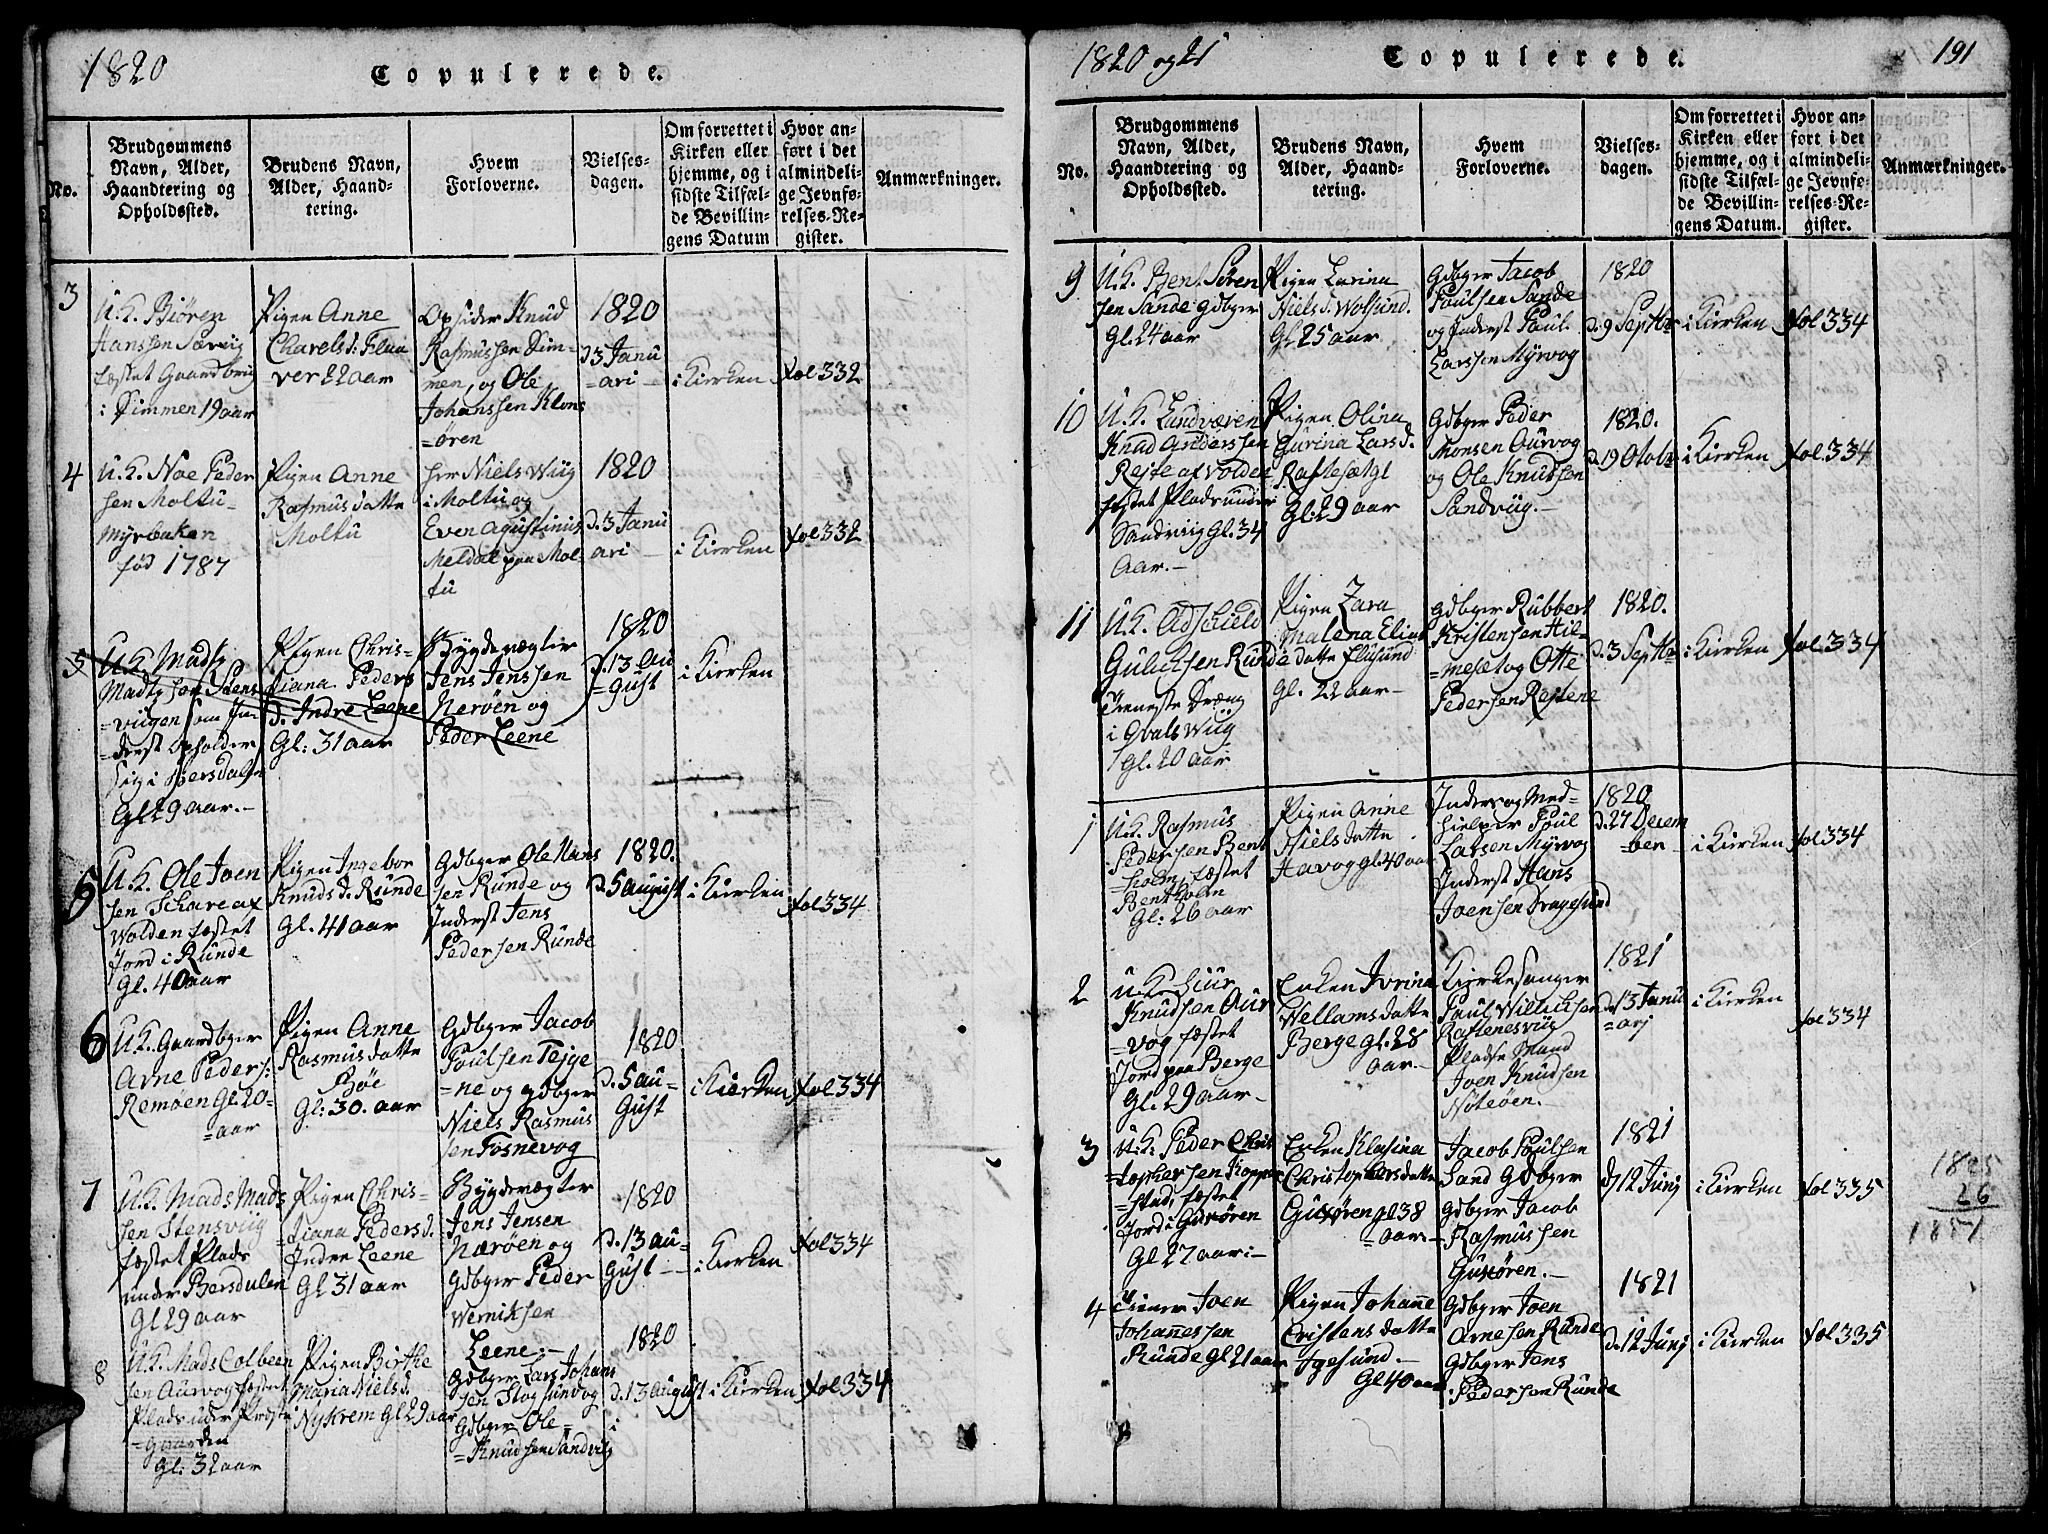 1820
Copulerede.
No.
Brudgommens
Navn, Alder,
Haandtering og
Opholdssted.
Brudens Navn,
Alder, Haand-
tering.
Hvem
Forloverne.
Vielses-
dagen.
Om forrettet i
Kirken eller
hjemme, og i
sidste Tilfæl-
de Bevillin-
gens Datum
Hvor an-
ført i det
almindeli-
ge Jevnfø-
relses-Re-
gister.
Anmærkninger.
3
U. K. Biören
Hanssen Sævig
fæstet Gaardbrug
i Dimmen 19 aar
Pigen Anne
Charels d. Flaa
ver 22 aar
Opsider Knud
Rasmussen Dim-
men, og Ole
Johanssen Klons
=ören
1820
d. 3 Janu
=ari
i Kierken
Fol 332
4
U. K. Noe Peder
sen Moltu-
Myrbaken
fød 1787
Pigen Anne
Rasmusdatte
Moltu
hr Niels Wiig
i Moltu og
Even Agustinus
Meldal paa Mol-
tu
1820
d. 3 Janu
ari
i Kierken
Fol 332
5
U. K. Mads
Madssøn Stens
=viigen som In-
derst opholder
sig i Bersdalen
Gl 29 aar.-
Pigen Chris-
tiana Peders
d. Indre Leene
Gl: 31 aar
Bygdevægter
Jens Jenssen
Nerøen og
Peder Leene
1820
d. 13 Au
=gust
i Kierken
5
U. K. Ole Joen
sen Schare af
Wolden fæstet
Jord i Runde
Gl. 40 aar
Pigen Ingebor
Knuds d. Runde
Gl. 41 aar
Gdbger Ole Hans
sen Runde og
Inderst Jens
Pedersen Runde
1820.
d. 5 august
i Kierken
Fol 334
6
U. K. Gaardbger
Arne Peders:
Remøen Gl 20-
=aar
Pigen Anne
Rasmusdatte
Bøe
Gl: 30. aar
Gdbger Jacob
Poulsen Tejge
=ne og gdbger
Niels Rasmus
sen Fosnevog
1820
d. 5 au-
Gust
i Kierken
Fol 334
7
U. K. Mads Mads
sen Stensviig
fæstet Plads
under Bersdalen
Gl 29 aar
Pigen Chris-
tiana Peders d.
Indre Leene
Gl 31 aar
Bygdevægter
Jens Jensen
Nærøen og
Gdbger Peder
Werniksen
Leene.-
1820
d. 13 au-
Gust
i Kierken
Fol 334
8
U. K. Mads Colbeen
sen Aurvog fæstet
Plads uder Præste
=gaarden
Gl: 32 aar
Pigen Birthe
Maria Niels d.
Nykrem Gl 29 aar
Gdbger Lars Johans
sen Flogsund og
Gdbger Ole
=Knudsen Sandviig
1820
d. 13 august
i Kierken
Fol 334
1820 og 21
Copulerede.
191
No.
Brudgommens
Navn, Alder,
Haandtering og
Opholdssted.
Brudens Navn,
Alder, Haand-
tering.
Hvem
Forloverne.
Vielses-
dagen.
Om forrettet i
Kirken eller
hjemme, og i
sidste Tilfæl-
de Bevillin-
gens Datum.
Hvor an-
ført i det
almindeli-
ge Jevnfø-
relses-Re-
gister.
Anmærkninger.
9
U. K. Bent Søren
sen Sande gdbger
Gl. 24 aar
Pigen Larina
Niels d. Wolsund.
Gl 25 aar
Gdbger Jacob
Paulsen Sande
og Inderst Paul
Larssen Myrvog
1820
d. 9 Septbr
i Kierken
Fol 334
10
U. K. Landværen
Knud Anderssen
Rejte af Volden
fæstet Plads under
Sandviig Gl. 34
Aar.-
Pigen Olina
Gurina Lars d.
Raftesætgl
Gl: 29 aar
Gdbger Peder
Monsen Aurvog
og Ole Knudsen
Sandviig.-
1820.
d. 19 Otobr
i Kierken
Fol 334
11
U. K. Adschield
Gulichsen Runde
Treneste Dræng
i Gvals Wiig
Gl. 20 aar
Pigen Zara
Malena Elias
datte Elusund
Gl. 22 aar-
Gdbger Rubbert
Kristensen Hil-
=meset og Otte
Pedersen Rejtene
1820.
d. 3 Septbr
i Kierken
Fol 334
1
U. K. Rasmus
Pedersen Bent
=holm, fæstet
Bentholm
Gl: 26 aar
Pigen Anne
Nielsdatte
Havog gl 40 aar
Inders og Med-
hielper Poul
Larsen Myrvog
Inderst Hans
Joensen Dragesund
1820
d. 27 Decem
=ber
i Kierken
Fol 334
2
U. K. Siur
Knudsen Aur
=vog fæstet
Jord paa Berge
Gl. 29 aar-
Enken Ivrina
Wellamsdatte
Berge gl. 28
aar-
Kierkesanger
Paul Willichsen
Raftenesviig
Pladse Mand
Joen Knudsen
Nøteøen.
1821
d. 13 Janu
=arj
i Kierken
Fol 334
3
U. K. Peder Chris
=tophersen Kopper
=stad, fæstet
Jord i Gurøren
Gl 27 aar:-
Enken Klasina
Christophersdatte
Gurøren gl 38
=aar-
Jacob Poulsen
Sand Gdbger
Gdbger Jacob
Rasmussen
Gurøren.-
1821
d 12 Junj
i Kierken
Fol 335
1825
26
1851
4
Tiener Joen
Johannessen
Runde Gl 21 aar
Pigen Johanne
Cristensdatte
Igesund.-
Gl 40 aar
Gdbger Joen
Arnesen Runde
Gdbger Jens
Pedersen Runde
1821
d. 12 Junj
i Kierken
Fol 335